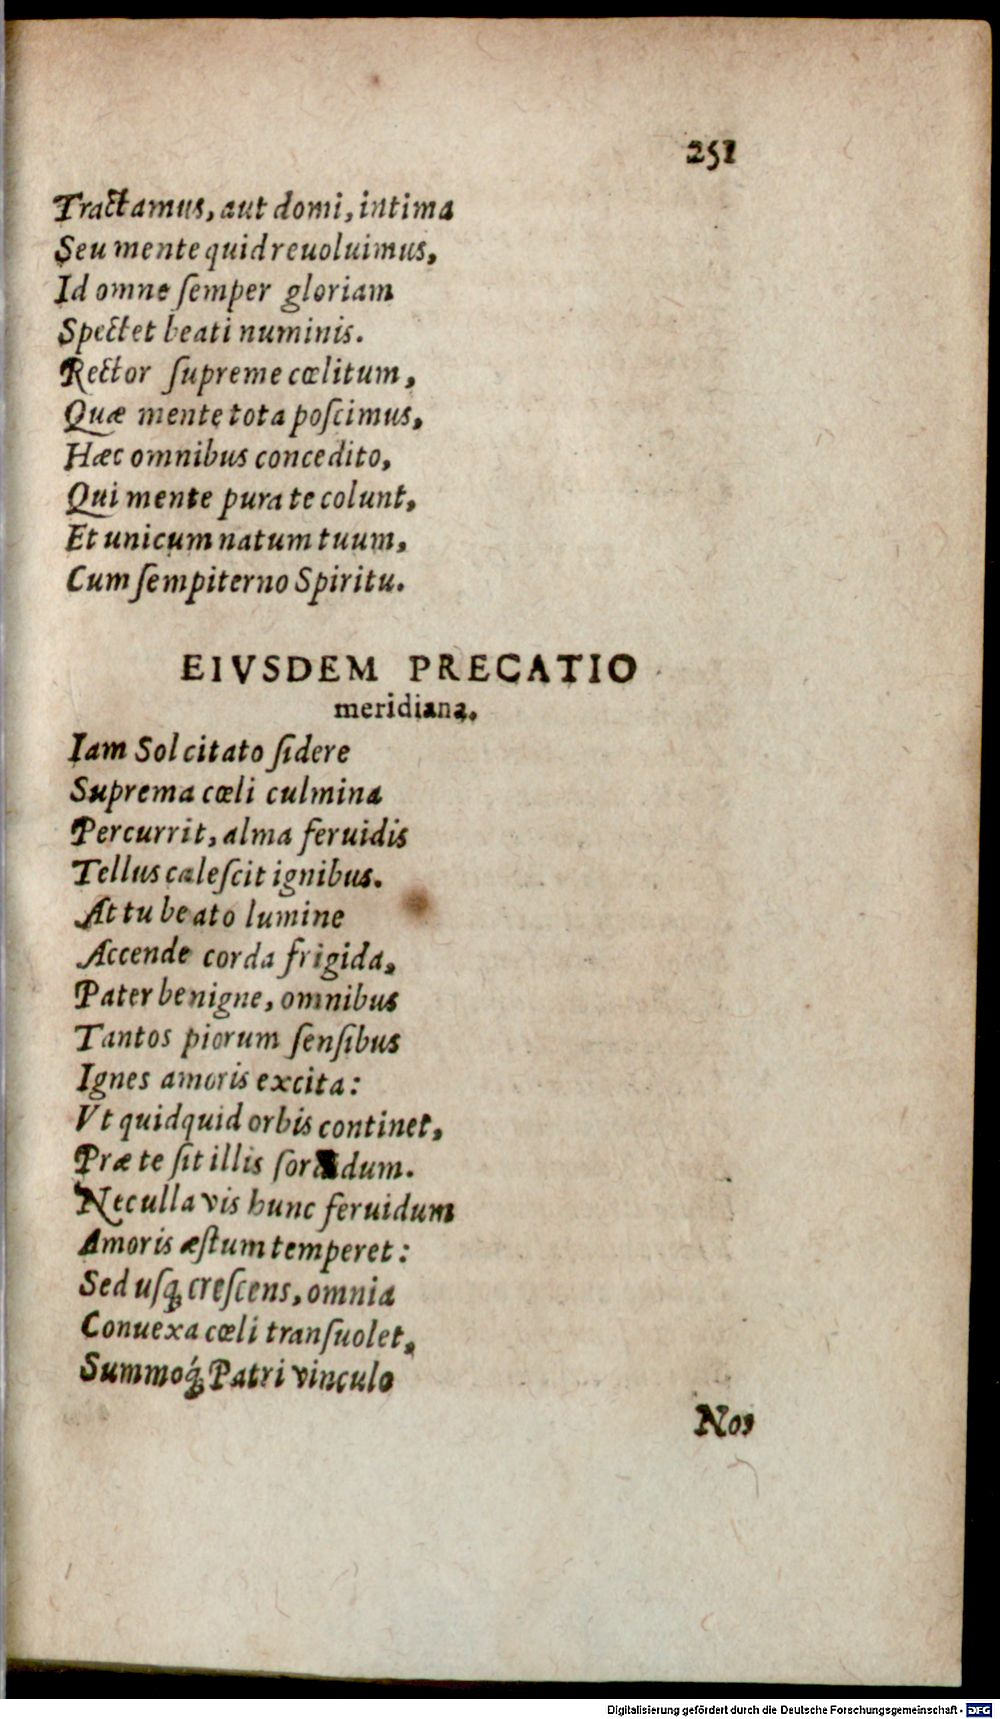 251
Tractamus, aut domi, intima
Seu mente quid reuoluimus,
Id omne ſemper gloriam
Spectet beati numinis.
Rector ſupreme cœlitum,
Quæ mente tota poſcimus,
Hæc omnibus concedito,
Qui mente pura te colunt,
Et unicum natum tuum,
Cum ſempiterno Spiritu.
EIVSDEM PRECATIO
meridiana.
Iam Sol citato ſidere
Suprema cœli culmina
Percurrit, alma feruidis
Tellus caleſcit ignibus.
At tu beato lumine
Accende corda frigida,
Pater benigne, omnibus
Tantos piorum ſenſibus
Ignes amoris excita:
Vt quidquid orbis continet,
Præ te ſit illis ſordidum.
Nec ulla vis hunc feruidum
Amoris æſtum temperet:
Sed uſq́; creſcens, omnia
Conuexa cœli tranſuolet,
Summoq́; Patri vinculo
Nos
Digitalisierung gefördert durch die Deutsche Forschungsgemeinschaft - DFG